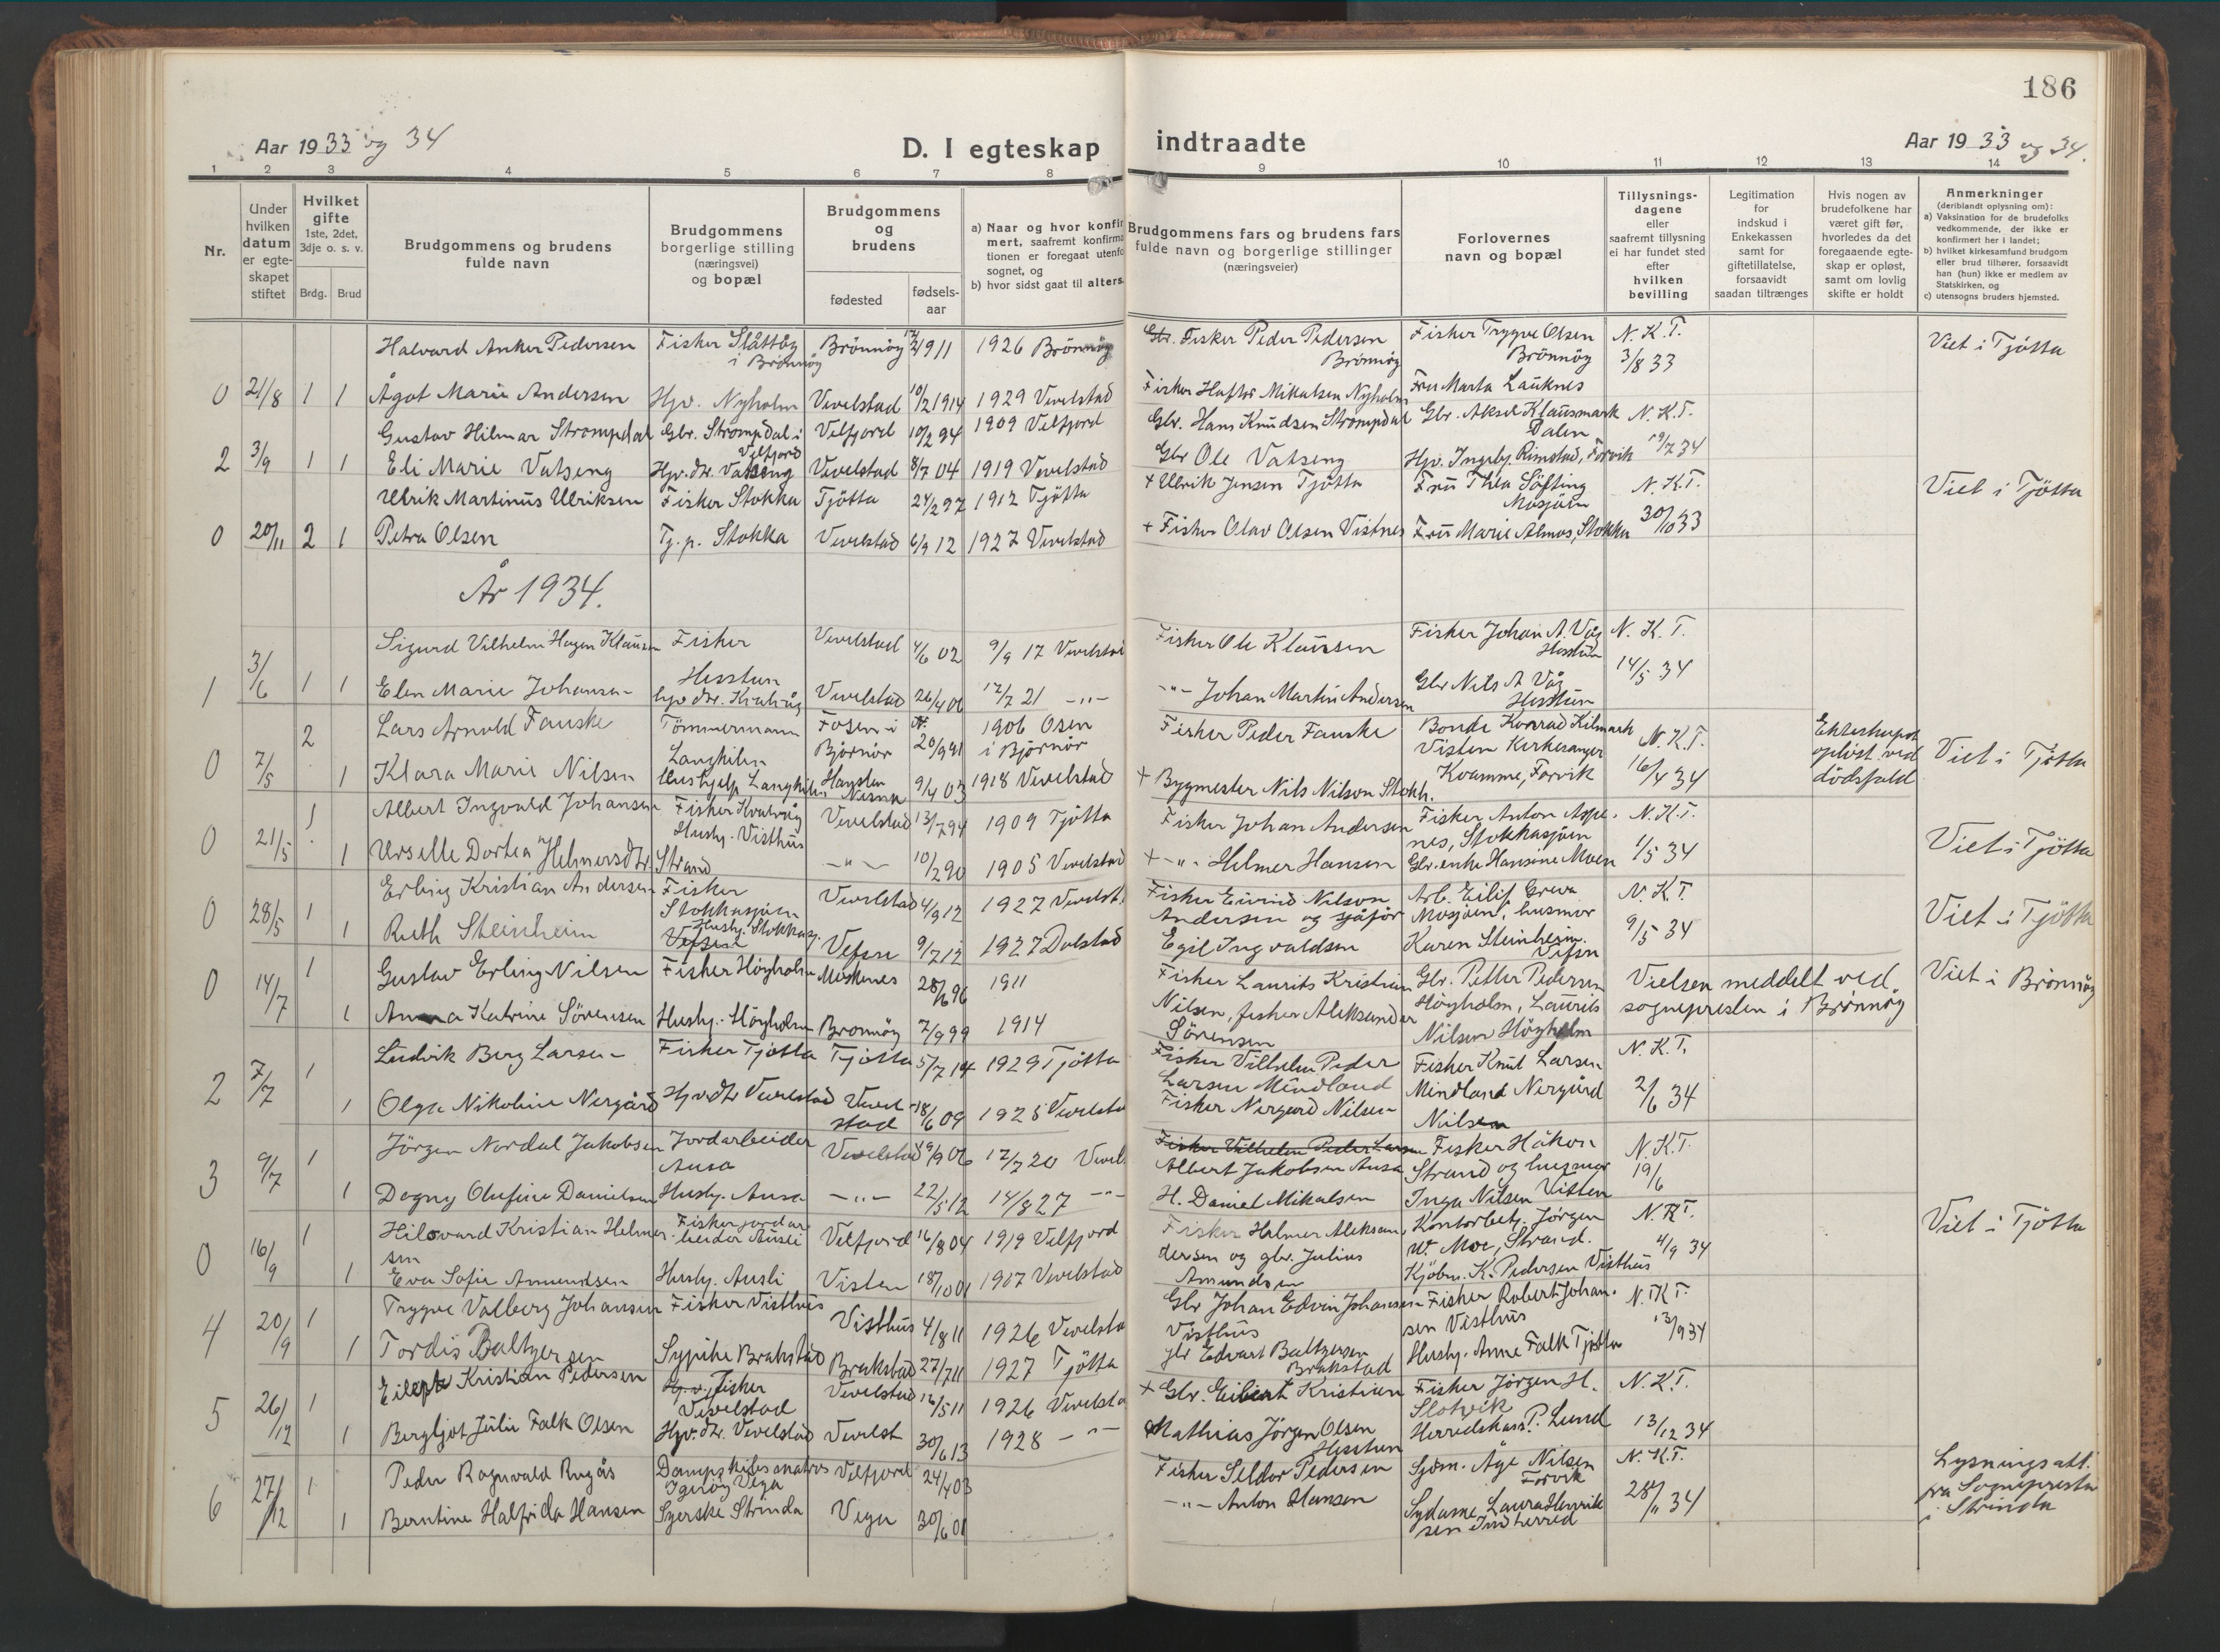 186
Aar 1933 og 34
D. I egteskap indtraadte
Aar 1933 og 34.
1 2 3 4 5 6 7 8 9 10 11 12 13 14
Nr.
Under hvilken datum er egte-skapet stiftet
Hvilket gifte 1ste, 2det, 3dje o. s. v.
Brdg. Brud
Brudgommens og brudens fulde navn
Brudgommens borgerlige stilling (næringsvei) og bopæl
Brudgommens og brudens
fødested
fødsels-aar
a) Naar og hvor konfir
mert, saafremt konfirma
tionen er foregaat utenfo
sognet, og
b) hvor sidst gaat til alters.
Brudgommens fars og brudens fars fulde navn og borgerlige stillinger (næringsveier)
Forlovernes navn og bopæl
Tillysnings-dagene eller saafremt tillysning ei har fundet sted efter hvilken bevilling
Legitimation for indskud i Enkekassen samt for giftetillatelse, forsaavidt saadan tiltrænges
Hvis nogen av brudefolkene har været gift før, hvorledes da det foregaaende egte-skap er opløst, samt om lovlig skifte er holdt
Anmerkninger
(deriblandt oplysning om):
a) Vaksination for de brudefolks vedkommende, der ikke er konfirmert her i landet;
b) hvilket kirkesamfund brudgom eller brud tilhører, forsaavidt han (hun) ikke er medlem av Statskirken, og
c) utensogns bruders hjemsted.
Halvard Anker Pedersen Fisker Slåttöy i Brönnöy Brönnöy 1911 1926 Brönnöy Fisker Peder Pedersen Brönnöy Fisker Trygve Olsen Brönnöy N. K. T. 3/8 33 Viet i Tjötta
0 21/8 1 1 Ågot Marie Andersen Hjv. Nyholm Vevelstad 10/2 1914 1929 Vevelstad Fisker Hafter Mikalsen Nyholm Fru Marta Lauknes
Gustav Hilmar Strompdal Gbr. Strompdal i Velfjord Velfjord 10/2 94 1909 Velfjord Gbr. Hans Knudsen Strompdal Gbr. Aksel Klausmark Dalen N. K. T.
2 3/9 1 1 Eli Marie Vatseng Hjv. dtr. Vatseng Vevelstad 8/7 04 1919 Vevelstad Gbr Ole Vatseng Hjv. Ingebj. Rimstad, Forvik 19/7 34
Ulrik Martinus Ulriksen Fisker Stokka Tjötta 24/2 97 1912 Tjötta + Ulrik Jensen Tjötta Fru Thea Söfting Mosjöen N. K. T. Viet i Tjötta
0 20/11 2 1 Petra Olsen Tj. p. Stokka Vevelstad 6/9 12 1927 Vevelstad + Fisker Olav Olsen Vistnes Fru Marie Almos, Stokka 30/10 33
År 1934.
Sigurd Vilhelm Hagen Klausen Fisker Hesstun Vevelstad 4/6 02 9/9 17 Vevelstad Fisker Ole Klausen Fisker Johan A. Våg Hesstun N. K. T.
1 3/6 1 1 Elen Marie Johansen hjv dtr. Kvalvåg Vevelstad 26/4 06 17/7 21 -"- -"- Johan Martin Andersen Gbr Nils A Våg Hesstun 14/5 34
Lars Arnold Fauske Tömmermann Langhilen Fosen i Björnör 20/9 91 1906 Osen i Björnör Fisker Peder Fauske Bonde Konrad Kilmark Visten Kirkesanger N. K. T. Ekteskapet oplöst ved dödsfald Viet i Tjötta
0 7/5 2 1 Klara Marie Nilsen Hushjelp Langhilen 9/4 03 1918 Vevelstad + Bygmester Nils Nilson Stokk. Kvamme, Forvik 16/4 34
Albert Ingvald Johansen Fisker Kvalvåg Vevelstad 13/7 94 1909 Tjötta Fisker Johan Andersen Fisker Anton Aspe-nes, Stokkasjöen N. K. T.
0 21/5 1 1 Urselle Dortea Helmersdtr. Husbj. Visthus Strand -"- 10/2 90 1905 Vevelstad + -"- Helmer Hansen Gbr. enke Hansine Moen 1/5 34 Viet i Tjötta
Erling Kristian Andersen Fisker Stokkasjöen Vevelstad 4/9 12 1927 Vevelst. Fisker Eivind Nilson Andersen og sjåför Arb. Eilif Greva Mosjöen, husmor N. K. T.
0 28/5 1 1 Ruth Steinheim Husbj. Stokkasj. Vefsn Vefsn 9/7 12 1927 Dolstad Egil Ingvaldsen Karen Steinheim. Vefsn 9/5 34 Viet i Tjötta
0 14/7 1 Gustav Erling Nilsen Fisker Höyholm Moskenes 28/6 96 1911 Fisker Laurits Kristian Gbr. Petter Pedersen Vielsen meddelt ved Viet i Brönnöy
1 Anna Katrine Sörensen Husbj. Höyholm Bronnöy 7/9 99 1914 Nilsen, fisker Aleksander Sörensen Höyholm, Laurits Nilsen Höyholm sognepresten i Brönnöy
Ludvik Berg Larsen Fisker Tjötta Tjötta 5/7 14 1929 Tjötta Fisker Vilhelm Peder Larsen Mindland Fisker Knut Larsen N. K. T.
2 7/7 1 1 Olga Nikoline Nergård Hjv. dtr Vevelstad Vevelstad 18/6 09 1925 Vevelsta Fisker Nergard Nilsen Mindland Nergård Nilsen 2/6 34
Jörgen Nordal Jakobsen Jordarbeider Ausa Vevelstad 19/9 06 17/7 20 Vevel. Fisker Vilhelm Peder Larsen Albert Jakobsen Ausa Fisker Håkon Strand og husmor N. K. T.
3 9/7 1 1 Dagny Olufine Danielsen Husbj. Ausa -"- 22/5 12 14/8 27 -"- H. Daniel Mikalsen Inga Nilsen Visten 19/6
Hilsvard Kristian Helmer-sen Fisker jordar beider Ausli Velfjord 16/8 04 1919 Velfjord Fisker Helmer Aleksan-dersen og gbr. Julius Kontorbetj. Jörgen W. Moe, Strand. N. K. T. Viet i Tjötta
0 16/9 1 1 Eva Sofie Amundsen Husbj. Ausli Visten 18/10 01 1917 Vevelstad Amundsen Kjöbm. K. Pedersen Visthus 4/9 34
Trygve Valberg Johansen Fisker Visthus Visthus 4/8 11 1926 Vevelsta Gbr Johan Edvin Johansen Visthus Fisker Robert Johan-sen Visthus N. K. T.
4 20/9 1 1 Tordis Baltzersen Sypike Brakstad Brakstad 27/7 11 1927 Tjötta gbr Edvart Baltzersen Brakstad Husbj. Anne Falk Tjötta 13/9 34
Kristian Pedersen Fisker Vevelstad Vevelstad 16/5 11 1926 Vevelsta + Gbr. Kristian Fisker Jörgen H. Slotvik N. K. T.
5 26/12 1 1 Bergljot Julie Falk Olsen Hjv. dtr. Vevelstad Vevelst 30/6 13 1928 -"- Mathias Jörgen Olsen Hesstun Herredskass. P. Lund 13/12 34
Peder Ragnvald Rugås Dampskibsmatros Igeröy Vega Velfjord 24/4 03 Fisker Seldor Pedersen Sjöm. Åge Nilsen Forvik N. K. T. Lysningsatt. fra Sogneprest i Strinda
6 27/12 1 1 Berntine Halfrida Hansen Syerske Strinda Vega 30/6 01 -"- Anton Hansen Sydame Laura Henrik sen Indherred 28/11 34